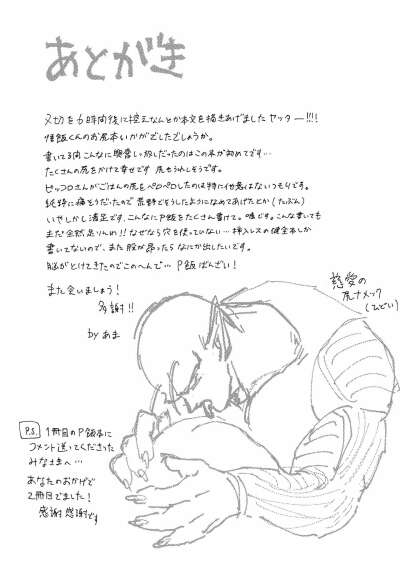 あとがき
〆切を6時間後に控えなんとか本文を描きあげましたヤッター!!!
悟飯くんのお尻本いかがでしたでしょうか。
書いてる間こんなに興奮しっ放しだったのはこの本が初めてです…
たくさんの尻をかけて幸せです 尻もうれしそうです。
ピッコロさんがごはんの尻をペロペロしたのは特に他意はないつもりです。
純粋に痛そうだったので
いやしかし満足です、こんなにP飯をたくさん書けて。嘘です。こんな書いても
まだ全然足りんわ!! なぜなら穴を使っていない…挿入レスの健全本しか
書いてないので、また股が昂ったらなにか出したいです。
脳がとけてきたのでこのへんで… P飯ばんざい!
また会いましょう!
多謝!!
by あま
慈愛の
尻ナメック
(ひどい)
P.S.
1冊目のP飯本に
コメント送ってくださった
みなさまへ…
あなたのおかげで
2冊目でました!
感謝感謝です